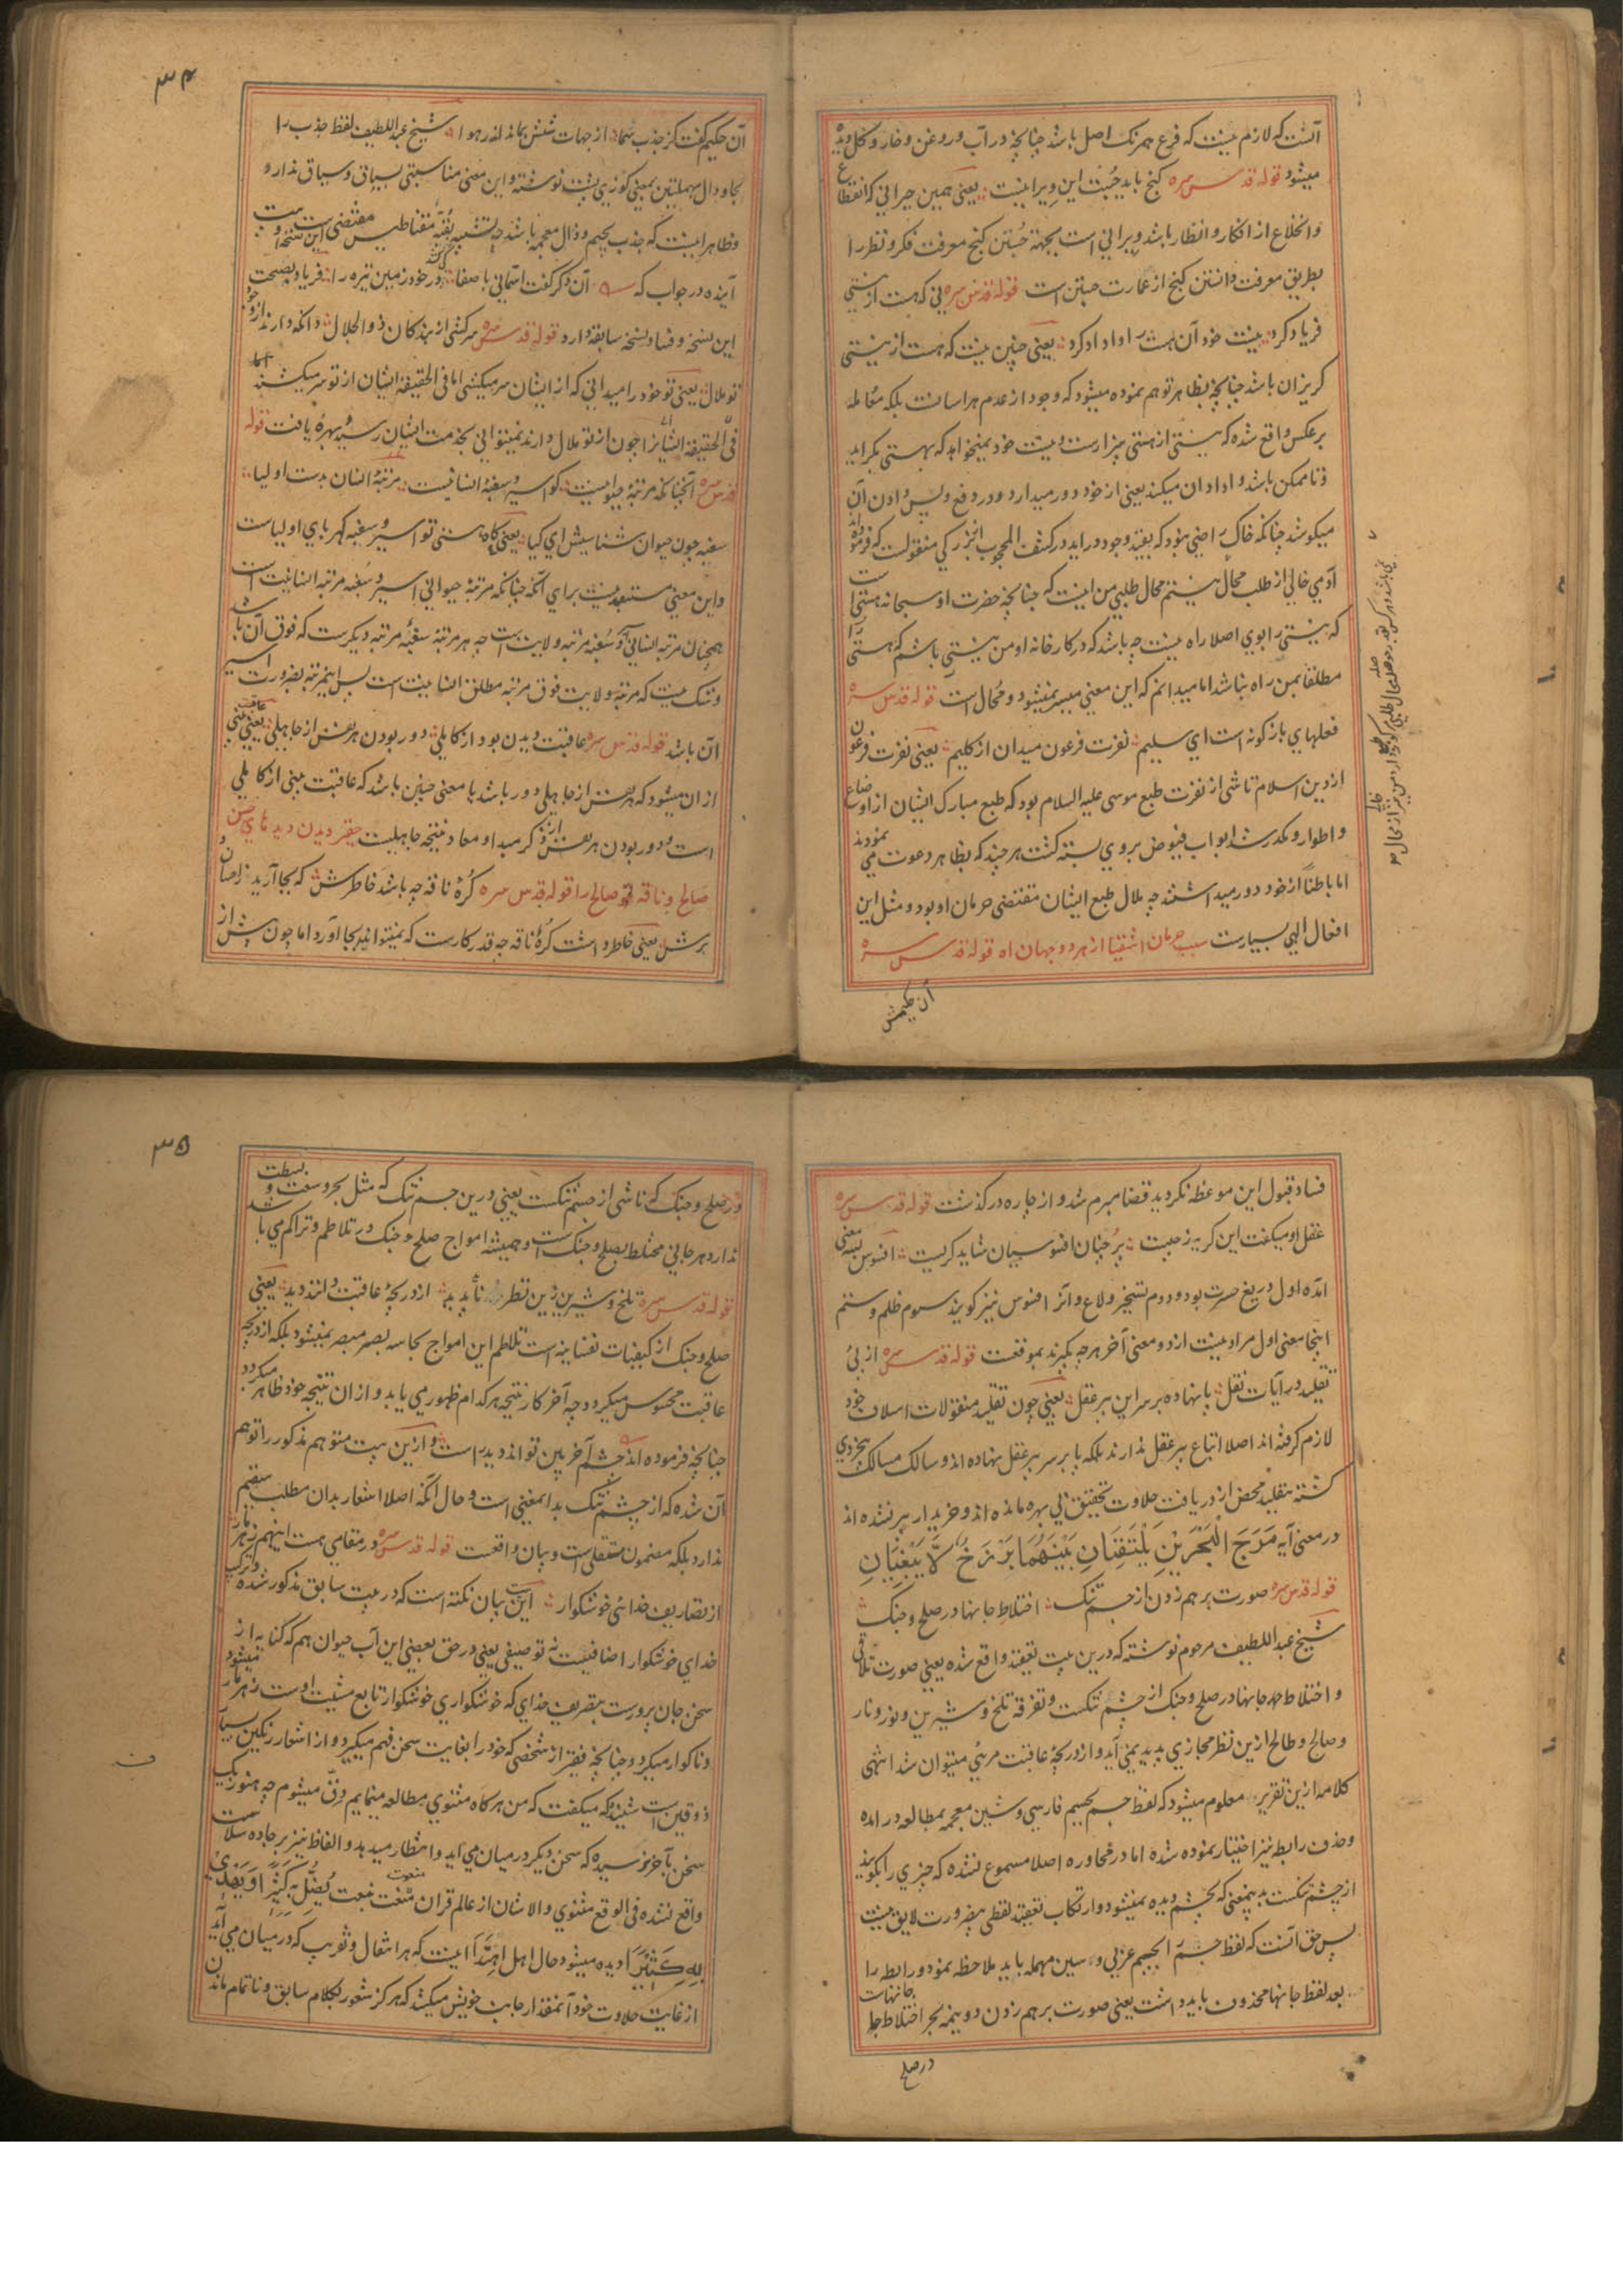 آنست که لازم نیست که فرع همرنگ اصل باشد چنانچه در آب و روغن و خار و گل دیده
میشود قوله قدس سره گنج باید جست این ویرانیست یعنی همین حیرانی که انقطاع
و انخلاع از افکار و انظار باشد ویرانی است بجهة جستن گنج معرفت فکر و نظر را
بطریق معرفت دانستن گنج از عمارت جستن است قوله قدس سره نی که هست از نیستی
فریاد کرد بیست خود آن هست را واداد کرد یعنی چنین نیست که هست از نیستی
گریزان باشد چنانچه بظاهر توهم نموده میشود که وجود از عدم هراسانست بلکه معامله
برعکس واقع شده که نیستی از هستی بیزارست و نیست خود نمیخواهد که بهستی گراید
و ناممکن باشد واداد آن میکند یعنی از خود دور میدارد و در دفع و پس دادن آن
میکوشد چنانکه خاک راضی نبود که بقید وجود در آید در کشف المحجوب از بزرگی منقولست که فرموده اند
آدمی خالی از طلب محال نیست محال طلبی من اینست که چنانچه حضرت او سبحانه هستی است
که نیستی را بوی اصلا راه نیست چه باشد که در کارخانه او من نیستی باشم که هستی را
مطلقا بمن راه نباشد اما میدانم که این معنی میسر نمیشود و محال است قوله قدس سره
فعلهای باژگونه است ای سلیم نفرت فرعون میدان از کلیم یعنی نفرت فرعون
از دین اسلام ناشی از نفرت طبع موسی علیه السلام بود که طبع مبارک ایشان از اوضاع
و اطوار او مکدر شد ابواب فیوض بروی بسته گشت هر چند که بظاهر دعوت می نمودند
اما باطناً از خود دور میداشتند چه ملال طبع ایشان مقتضی حرمان او بود و مثل این
افعال الهی بسیارست سبب حرمان اشقیا از هر دو جهان اه قوله قدس سره
آن حکیمش
آن حکیم گفت کز جذب سما از جهات شش بماند اندر هوا شیخ عبد اللطیف لفظ جذب را
بجا و دال مهملتین بمعنی کوزی پشت نوشته و این معنی مناسبتی بسیاق و سباق ندارد
و ظاهر اینست که جذب بجیم و ذال معجمه باشد چه تشبیه بقبه مقناطیس مقتضی این نسخه است و بیت
آینده در جواب که آن دگر گفت آسمانی با صفا در خود زمین تیره را فریاد بصحت
این نسخه و فساد نسخه سابقه دارد قوله قدس سره سرکشی از بندگان ذو الجلال دانکه دارند از وجود
تو ملال یعنی تو خود را میدانی که از ایشان سر میکشی اما فی الحقیقة ایشان از تو سر میکشند اما
فی الحقیقة ایشانرا چون از تو ملال دارند نمیتوانی بخدمت ایشان رسید و بهره یافت قوله
قدس سره آنچنانکه مرتبه حیوانیست کو اسیر و سغبه انسانیست مرتبه انسان بدست اولیا
سغبه چون حیوان شناسیش ای کیا یعنی کاه هستی تو اسیر و سغبه کهربای اولیاست
و این معنی مستبعد نیست برای آنکه چنانکه مرتبه حیوانی اسیر و سغبه مرتبه انسانیت است
همچنان مرتبه انسانی سغبه مرتبه ولایت است چه هر مرتبه سغبه مرتبه دیگرست که فوق آن باشد
و شک نیست که مرتبه ولایت فوق مرتبه مطلق انسانیت است پس این مرتبه بضرورت اسیر
آن باشد قوله قدس سره عاقبت دیدن بود از کاملی دور بودن هر نفس از جاهلی یعنی عاقبت بینی
از ان میشود که هر نفس از جاهلی دور باشد یا معنی چنین باشد که عاقبت بینی از کاملی
است و دور بودن هر نفس از فکر مبدا و معاد نتیجه جاهلیست حقیر دیدن دیدهای حس
صالح و ناقه صالح را قوله قدس سره کره ناقه چه باشد خاطرش که بجا آرید ز احسان و
برش یعنی خاطر داشت کره ناقه چه قدر کارست که نمیتواند بجا آورد اما چون پیش از
فساد قبول این موعظه نکردید قضا مبرم شد و از چاره در گذشت قوله قدس سره
عقل او میگفت این گریه ز چیست بر چنان افسوسیان شاید گریست افسوس بسه معنی
آمده اول دریغ و حسرت بود و دوم تسخیر و لاغ و آنرا فسوس نیز گویند سوم ظلم و ستم
اینجا معنی اول مراد نیست از دو معنی آخر هر چه بگیرند بموقعست قوله قدس سره از پی
تقلید در آیات نقل پا نهاده بر سر این پیر عقل یعنی چون تقلید منقولات اسلاف خود
لازم گرفته اند اصلا اتباع پیر عقل ندارند بلکه پا بر سر پیر عقل نهاده اند و سالک مسالک بیخردی
گشته بتقلید محض از دریافت حلاوت تحقیق بی بهره مانده اند و خریدار پیر نشده اند
در معنی آیه مَرَجَ الْبَحْرَيْنِ يَلْتَقِيَانِ بَيْنَهُمَا بَرْزَخٌ لَّا يَبْغِيَانِ
قوله قدس سره صورت بر هم زدن از جسم تنگ اختلاط جانها در صلح و جنگ
شیخ عبد اللطیف مرحوم نوشته که درین بیت تعقید واقع شده یعنی صورت تلاقی
و اختلاط همه جانها در صلح و جنگ از چشم تنگست و تفرقه تلخ و شیرین و نور و نار
و صالح و طالح ازین نظر مجازی پدید نمی آید و از دریچه عاقبت مرئی میتوان شد انتهی
کلامه ازین تقریر معلوم میشود که لفظ جسم بجیم فارسی و شین معجمه بمطالعه در آمده
و حذف رابطه نیز اختیار نموده شده اما در محاوره اصلا مسموع نشده که چیزی را گویند
از چشم تنگست بدینمعنی که بچشم دیده نمیشود و ارتکاب تعقید لفظی بیضرورت لایق نیست
پس حق آنست که لفظ جسم را بجیم عربی و سین مهمله باید ملاحظه نمود و رابطه را
بعد لفظ جانها محذوف باید داشت یعنی صورت بر هم زدن دو نیمه بحر اختلاط جانهاست
در صلح
در صلح و جنگ که ناشی از جسم تنگست یعنی درین جسم تنگ که مثل بحر وسعت و بسطت
ندارد هر جانی مختلط بصلح و جنگ است و همیشه امواج صلح و جنگ در تلاطم و تراکم می باشد
قوله قدس سره تلخ و شیرین زین نظر ناید پدید از دریچه عاقبت دانند دید یعنی
صلح و جنگ از کیفیات نفسانیه است تلاطم این امواج بحاسه بصر مبصر نمیشود بلکه از دریچه
عاقبت محسوس میگردد چه آخر کار نتیجه هر کدام ظهور می یابد و از ان نتیجه خود ظاهر میگردد
چنانچه فرموده اند چشم آخر بین تواند دید راست و ازین بیت متوهم مذکور را توهم
آن شده که از چشم تنگ بدانمعنی است و حال آنکه اصلا اشعار بدان مطلب سقیم
ندارد بلکه مضمون مستقلی است و بیان واقعست قوله قدس سره در مقامی هست اینهم زهر مار
از تصاریف خدائی خوشگوار این بیان نکته است که در بیت سابق مذکور شده و ترکیب
خدای خوشگوار اضافیست نه توصیفی یعنی در حق بعضی این آب حیوان هم که کنایه از
سخن جان پرورست بتصریف خدای که خوشگواری خوشگوار تابع مشیت اوست زهر مار میشود
و ناگوار میگردد چنانچه فقیر از شخصی که خود را بغایت سخن فهم میگیرد و از اشعار رنگین بسیار
ذوقین است شنیده که میگفت که من هرگاه مثنوی مطالعه مینمایم دق میشوم چه هنوز یک
سخن بآخر نرسیده که سخن دیگر در میان می آید و انتظار میدهد و الفاظ نیز بر جاده سلاست
واقع نشده فی الواقع مثنوی والاشان از عالم قرآن منعوت بنعت يُضِلُّ بِهِ كَثِيرًا وَيَهْدِي
بِهِ كَثِيرًا دیده میشود حال اهل اهتدا اینست که هر انتقال و تقریب که در میان می آید
از غایت حلاوت خود آنمقدار جانب خویش میکشد که هرگز شعور بکلام سابق و ناتمام ماندن